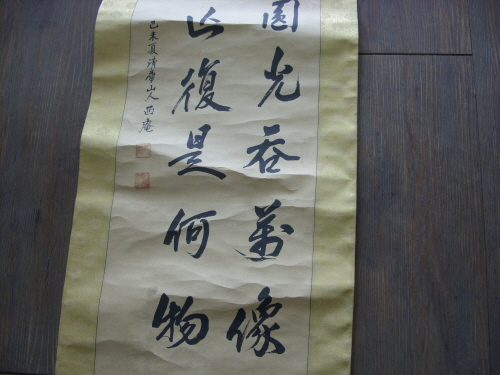 圓光吞萬像
亡復是何物
己未夏清山人西庵